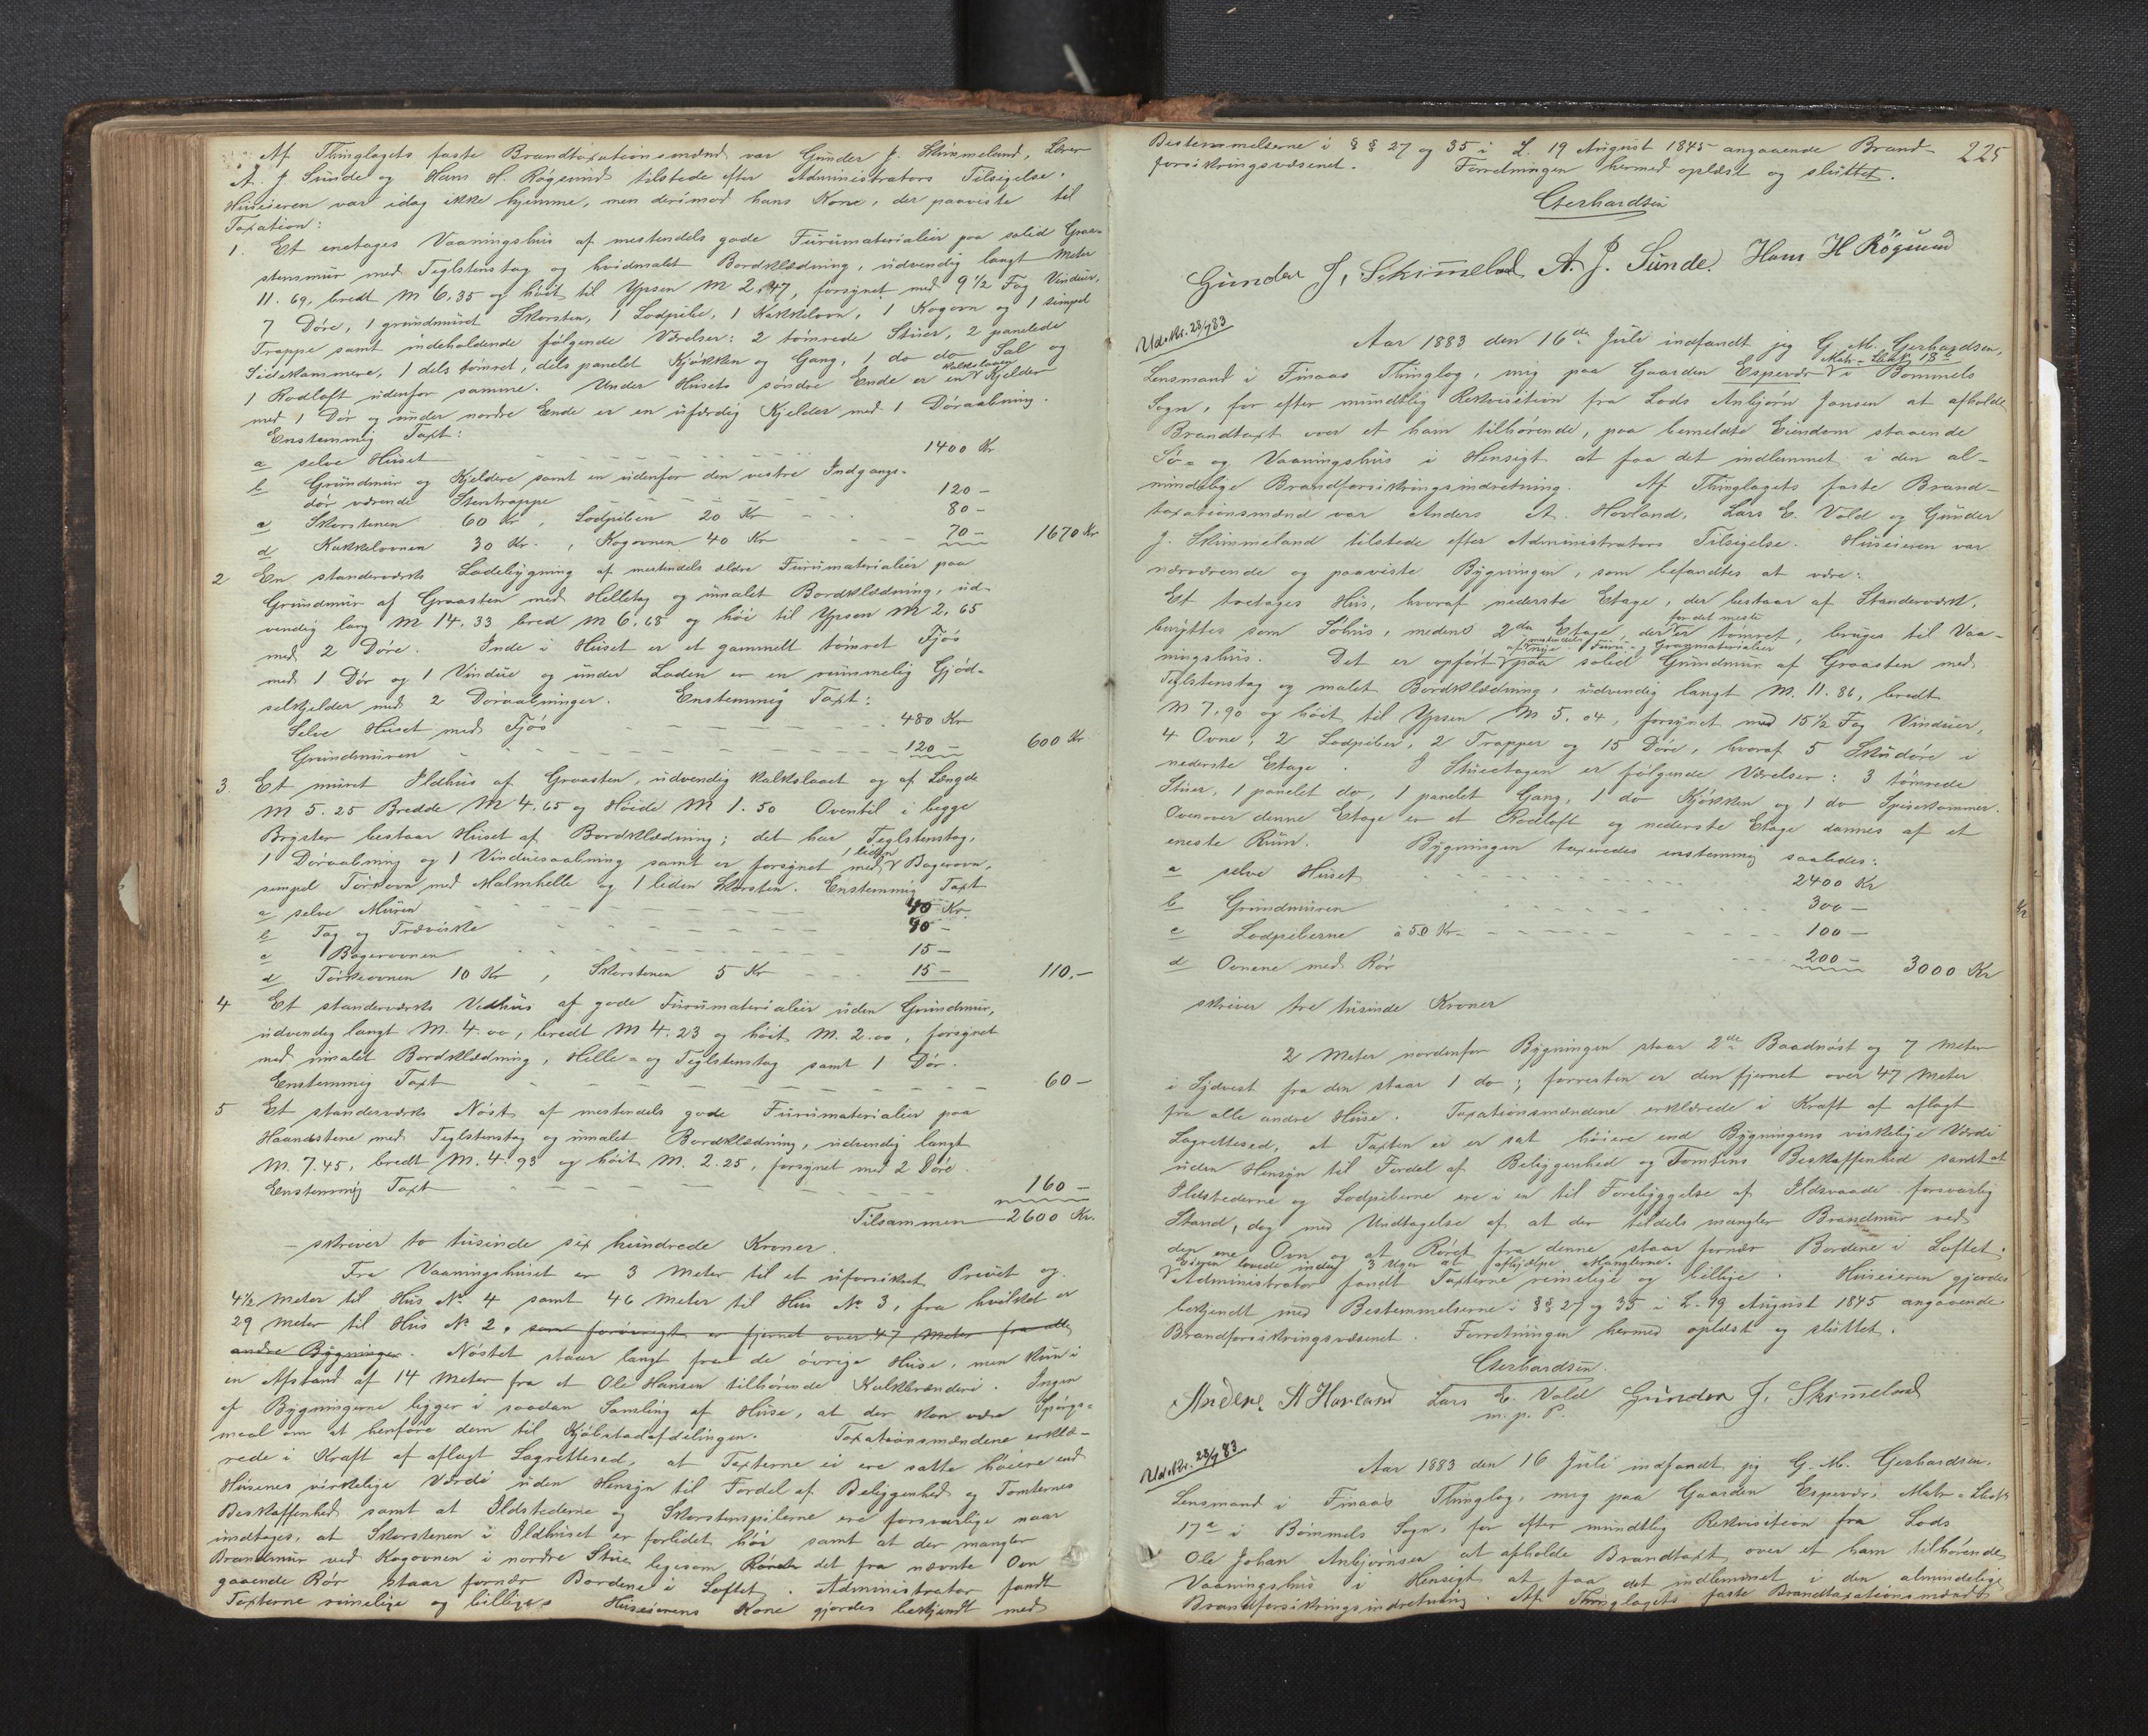 Af Thinglagets faste Brandtaxationsmænd var Gunder J. Skimmeland, Lærer
A. J. Sunde og Hans H. Røgsund tilstede efter Administrators Tilsigelse.
Huseieren var idag ikke hjemme, men derimod hans Kone, der paaviste til
Taxation:
1. Et enetages Vaaningshus af mestendels gode Furumaterialier paa solid Graa-
stensmur med Teglstenstag og hvidmalet Bordklædning, udvendig langt Meter
11.69, bredt M 6,35 og høit til Ypsen M 2.47, forsynet med 9 1/2 Fag Vinduer,
7 Døre, 1 grundmuret Skorsten, 1 Lodpibe, 1 Kakkelovn, 1 Kogovn og 1 simpel
Trappe samt indeholdende følgende Værelser: 2 tømrede Stuer, 2 panelede
Sidekammere, 1 dels tømret, dels panelet Kjøkken og Gang, 1 do do Sal og
1 Rodloft udenfor samme. Under Husets søndre Ende er en kalkslaaen Kjelder
med 1 Dør og under nordre Ende er en ufærdig Kjelder med 1 Døraabning.
Enstemmig Taxt:
a selve Huset 1400 Kr
b Grundmur og Kjeldere samt en udenfor den vestre Indgangs-
dør værende Stentrappe 120 -
c Skorstenen 60 Kr, Lodpiben 20 Kr 80 -
d Kakkelovnen 30 Kr., Kogovnen 40 Kr 70 - 1670 Kr
2 En standerværks Ladebygning af mestendels ældre Furumaterialier paa
Grundmur af Graasten med Helletag og umalet Bordklædning, ud-
vendig lang M 14.33 bred M 6.68 og høi til Ypsen M 2.65
med 2 Døre. Inde i Huset er et gammelt tømret Fjøs
med 1 Dør og 1 Vindue og under Laden er en rummelig Gjød-
selkjelder med 2 Døraabninger. Enstemmig Taxt:
Selve Huset med Fjøs 480 Kr
Grundmuren 120 - 600 Kr
3. Et muret Ildhus af Graasten, udvendig kalkslaaet og af Længde
M 5.25 Bredde M 4.65 og Høide M 1.50 Oventil i begge
Bryster bestaar Huset af Bordklædning; det har Teglstenstag,
1 Døraabning og 1 Vinduesaabning samt er forsynet med 1 liden Bagerovn,
simpel Tørkovn med Malmhelle og 1 liden Skorsten. Enstemmig Taxt
a selve Muren 40 Kr.
b Tag og Træviske 40 -
c Bagerovnen 15 -
d Tørkeovnen 10 Kr, Skorstenen 5 Kr 15 - 110.-
4 Et standerværks Vedhus af gode Furumaterialier uden Grundmur,
udvendig langt M. 4.00, bredt M 4.23 og høit M. 2.00, forsynet
med umalet Bordklædning, Helle- og Teglstenstag samt 1 Dør.
Enstemmig Taxt 60 -
5 Et standerværks Nøst af mestendels gode Furumaterialier paa
Haandstene med Teglstenstag og umalet Bordklædning, udvendig langt
M. 7.45, bredt M. 4.93 og høit M. 2.25, forsynet med 2 Døre.
Enstemmig Taxt 160 -
Tilsammen 2600 Kr.
- skriver to tusinde six hundrede Kroner.
Fra Vaaningshuset er 3 Meter til et uforsikret Privet og
4 1/2 Meter til Hus No 4 samt 46 Meter til Hus No 3, fra hvilket er
29 Meter til Hus No 2. som forøvrigt er fjernet over 47 Meter fra alle
andre Bygninger. Nøstet staar langt fra de øvrige Huse, men kun i
en Afstand af 14 Meter fra et Ole Hansen tilhørende Kalkbrænderi. Ingen
af Bygningerne ligger i saadan Samling af Huse, at der kan være Spørgs-
maal om at henføre dem til Kjøbstadafdelingen. Taxationsmændene erklæ-
rede i Kraft af aflagt Lagrettesed, at Taxterne ei ere satte høiere end
Husenes virkelige Værdi uden Hensyn til Fordel af Beliggenhed og Tomternes
Beskaffenhed samt at Ildstederne og Skorstenspiberne ere forsvarlige naar
undtages, at Skorstenen i Ildhuset er forlidet høi samt at der mangler
Brandmur ved Kogovnen i nordre Stue ligesom det fra nævnte Ovn
gaaende Rør staar fornær Bordene i Loftet. Administrator fandt
Taxterne rimelige og billige. Huseierens Kone gjordes bekjendt med
225
Bestemmelserne i § § 27 og 35 i L. 19 August 1845 angaaende Brand-
forsikringsvæsenet. Forretningen hermed oplæst og sluttet.
Gerhardsen
Gunder J. Skimmeland A. J. Sunde. Hans H Røgsund
Udskr. 28/7 83
Aar 1883 den 16de Juli indfandt jeg G. M. Gerhardsen,
Lensmand i Finaas Thinglag, mig paa Gaarden Espevær Matr-Løbn 18a i Bømmels
Sogn, for efter mundtlig Rekvisition fra Lods Anbjørn Jansen at afholde
Brandtaxt over et ham tilhørende, paa bemeldte Eiendom staaende
Sø- og Vaaningshus i Hensigt at faa det indlemmet i den al-
mindelige Brandforsikringsindretning. Af Thinglagets faste Brand-
taxationsmænd var Anders A. Hovland, Lars E. Vold og Gunder
J. Skimmeland tilstede efter Administrators Tilsigelse. Huseieren var
nærværende og paaviste Bygningen, som befandtes at være:
Et toetages Hus, hvoraf nederste Etage, der bestaar af Standerværk,
benyttes som Søhus, medens 2den Etage, der er for det meste tømret, bruges til Vaa-
ningshus. Det er opført af mestendels nye Furu- og Granmaterialier paa solid Grundmur af Graasten med
Teglstenstag og malet Bordklædning, udvendig langt M. 11.86, bredt
M 7.90 og høit til Ypsen M 5.04, forsynet med 15 1/2 Fag Vinduer,
4 Ovne, 2 Lodpiber, 2 Trapper og 15 Døre, hvoraf 5 Skudøre i
nederste Etage. I Stueetagen er følgende Værelser: 3 tømrede
Stuer, 1 panelet do, 1 panelet Gang, 1 do Kjøkken og 1 do Spisekammer.
Ovenover denne Etage er et Rodloft og nederste Etage dannes af et
eneste Rum. Bygningen taxeredes enstemmig saaledes:
a selve Huset 2400 Kr
b Grundmuren 300 -
c Lodpiberne à 50 Kr 100 -
d Ovnene med Rør 200 - 3000 Kr
skriver tre tusinde Kroner
2 Meter nordenfor Bygningen staar 2de Baadnøst og 7 Meter
i Sydvest fra den staar 1 do; forresten er den fjernet over 47 Meter
fra alle andre Huse. Taxationsmændene erklærede i Kraft af aflagt
Lagrettesed, at Taxten ei er sat høiere end Bygningens virkelige Værdi
uden Hensyn til Fordel af Beliggenhed og Tomtens Beskaffenhed samt at
Ildstederne og Lodpiberne ere i en til Forebyggelse af Ildsvaade forsvarlig
Stand, dog med Undtagelse af at der tildels mangler Brandmur ved
den ene Ovn og at Røret fra denne staar fornær Bordene i Loftet.
Eieren lovede inden 3 Uger at afhjælpe Manglerne.
Administrator fandt Taxterne rimelige og billige. Huseieren gjordes
bekjendt med Bestemmelserne i §§ 27 og 35 i L. 19 August 1845 angaaende
Brandforsikringsvæsenet. Forretningen hermed oplæst og sluttet.
Gerhardsen.
Anders A Hovland Lars E. Vold Gunder J. Skimeland
m. p. P.
Udskr. 28/7 83
Aar 1883 den 16 Juli indfandt jeg G. M. Gerhardsen,
Lensmand i Finaas Thinglag, mig paa Gaarden Espevær, Matr-Løbn
17a i Bømmels Sogn, for efter mundtlig Rekvisition fra Lods
Ole Johan Anbjørnsen at afholde Brandtaxt over et ham tilhørende
Vaaningshus i Hensigt at faa det indlemmet i den almindelige
Brandforsikringsindretning. Af Thinglagets faste Brandtaxationsmænd